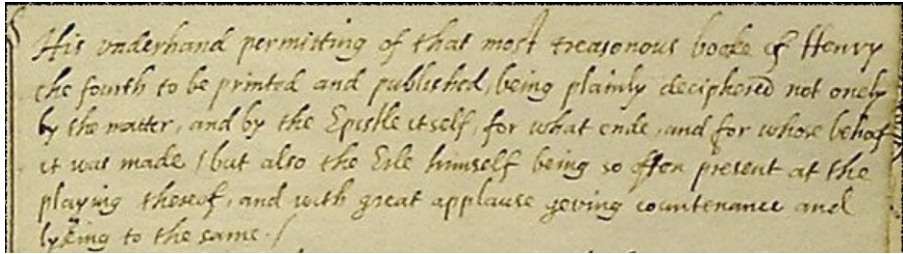 His vnderhand permitting of that most treasonous booke of Henry
the fourth to be printed and published, being plainly deciphered not onely
by the matter, and by the Epistle itself, for what ende, and for whose behalf
it was made / but also the Erle himself being so often present at the
playing thereof, and with great applause geving countenance and
lyking to the same. /